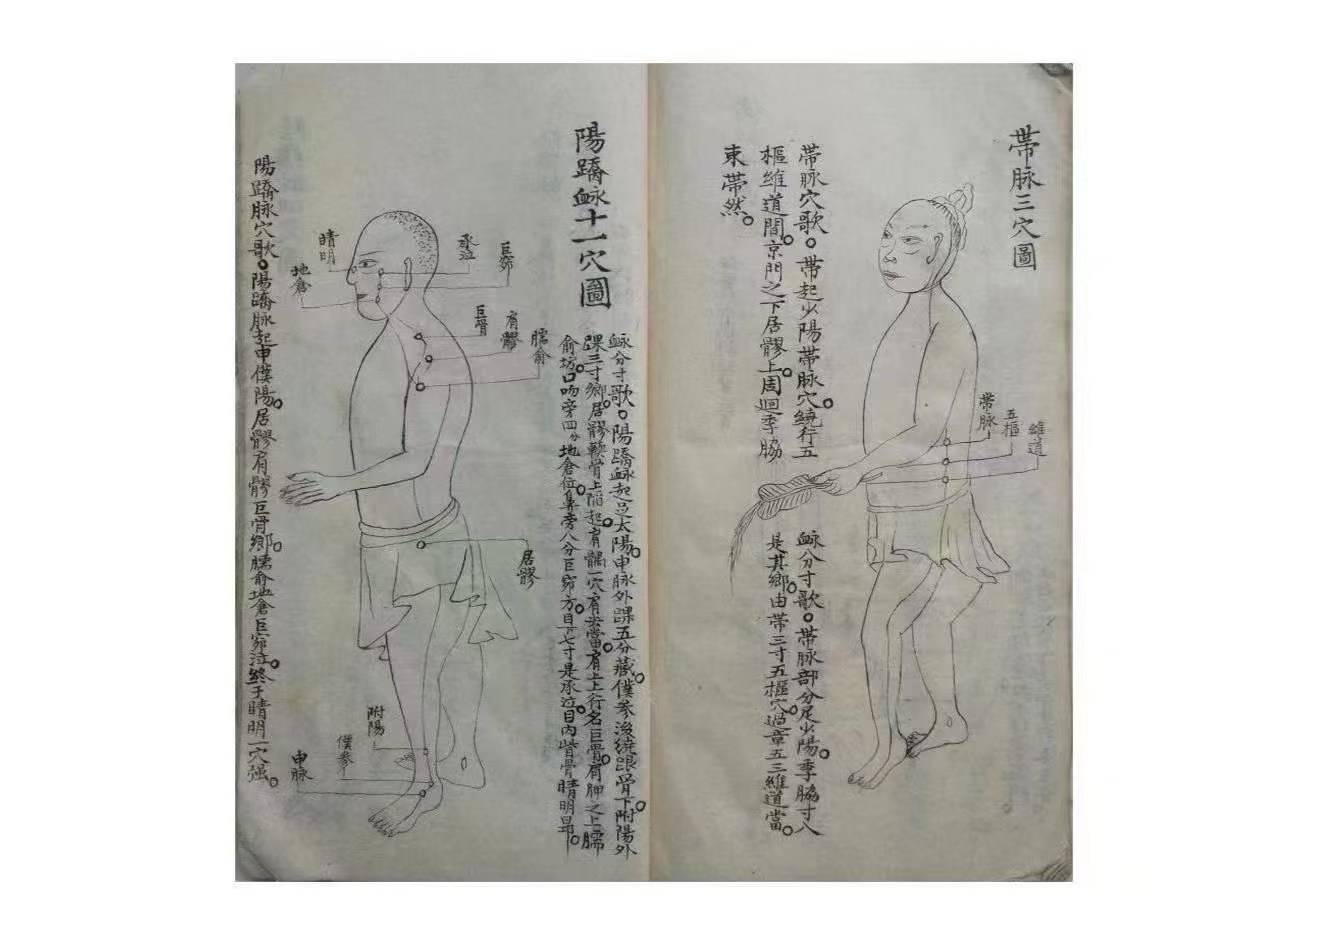 帶脉三穴圖
帶脉
五樞
維道
帶脉穴歌。帶起少陽帶脉穴。繞行五
樞維道間。京門之下居髎上。周迴季脇
束帶然。
䘑分寸歌。帶脉部分足少陽。季脇寸八
是其鄉。由帶三寸五樞穴。過章五三維道當。
陽蹻䘑十一穴圖
䘑分寸歌。陽蹻䘑起足太陽。申脉外踝五分藏。僕參後繞跟骨下。附陽外
踝三寸鄉。居髎軟骨上陷起。肩髃一穴肩尖當。肩上上行名巨骨。肩胛之上臑
俞坊。口吻旁四分地倉位。鼻旁八分巨窌方。目下七寸是承泣。目內眥骨睛明昻。
巨窌
承泣
睛明
地倉
巨骨
肩髎
臑俞
居髎
附陽
僕參
申脉
陽蹻脉穴歌。陽蹻脉起申僕陽。居髎肩髎巨骨鄉。臑俞地倉巨窌泣。終于睛明一穴强。